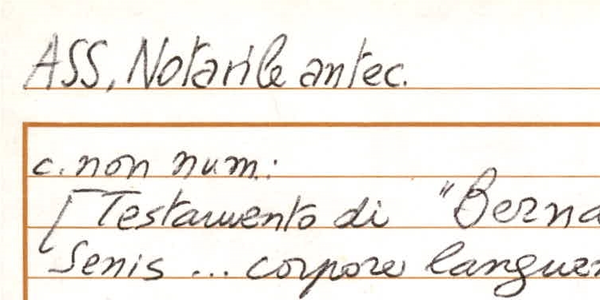 ASS, Notarile antec.
c. non num.:
[Testamento di "Berna
Senis ... corpore languen